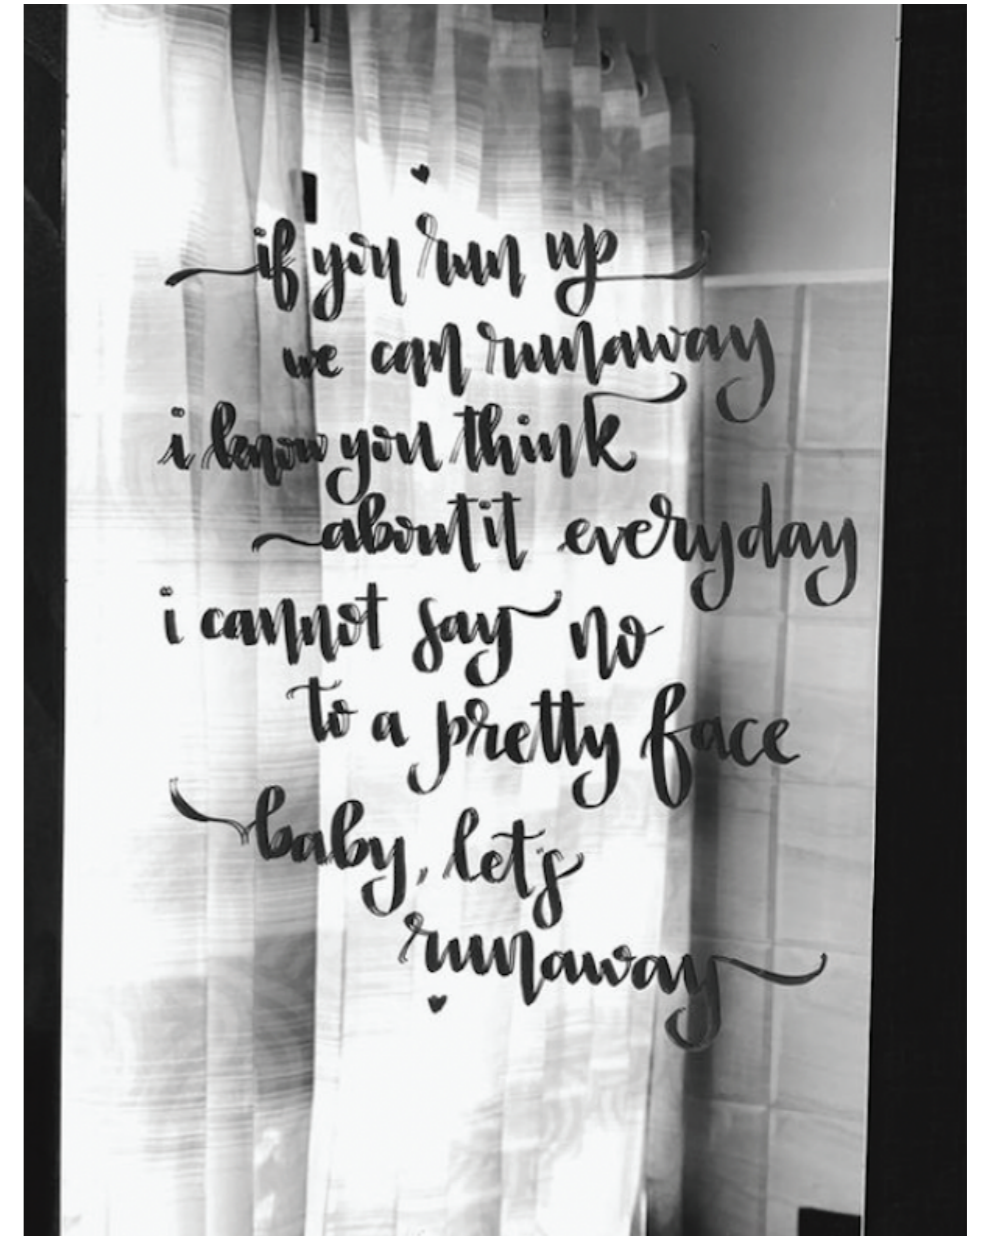 if you run up
we can runaway
i know you think
about it everyday
i cannot say no
to a pretty face
baby, let's
runaway